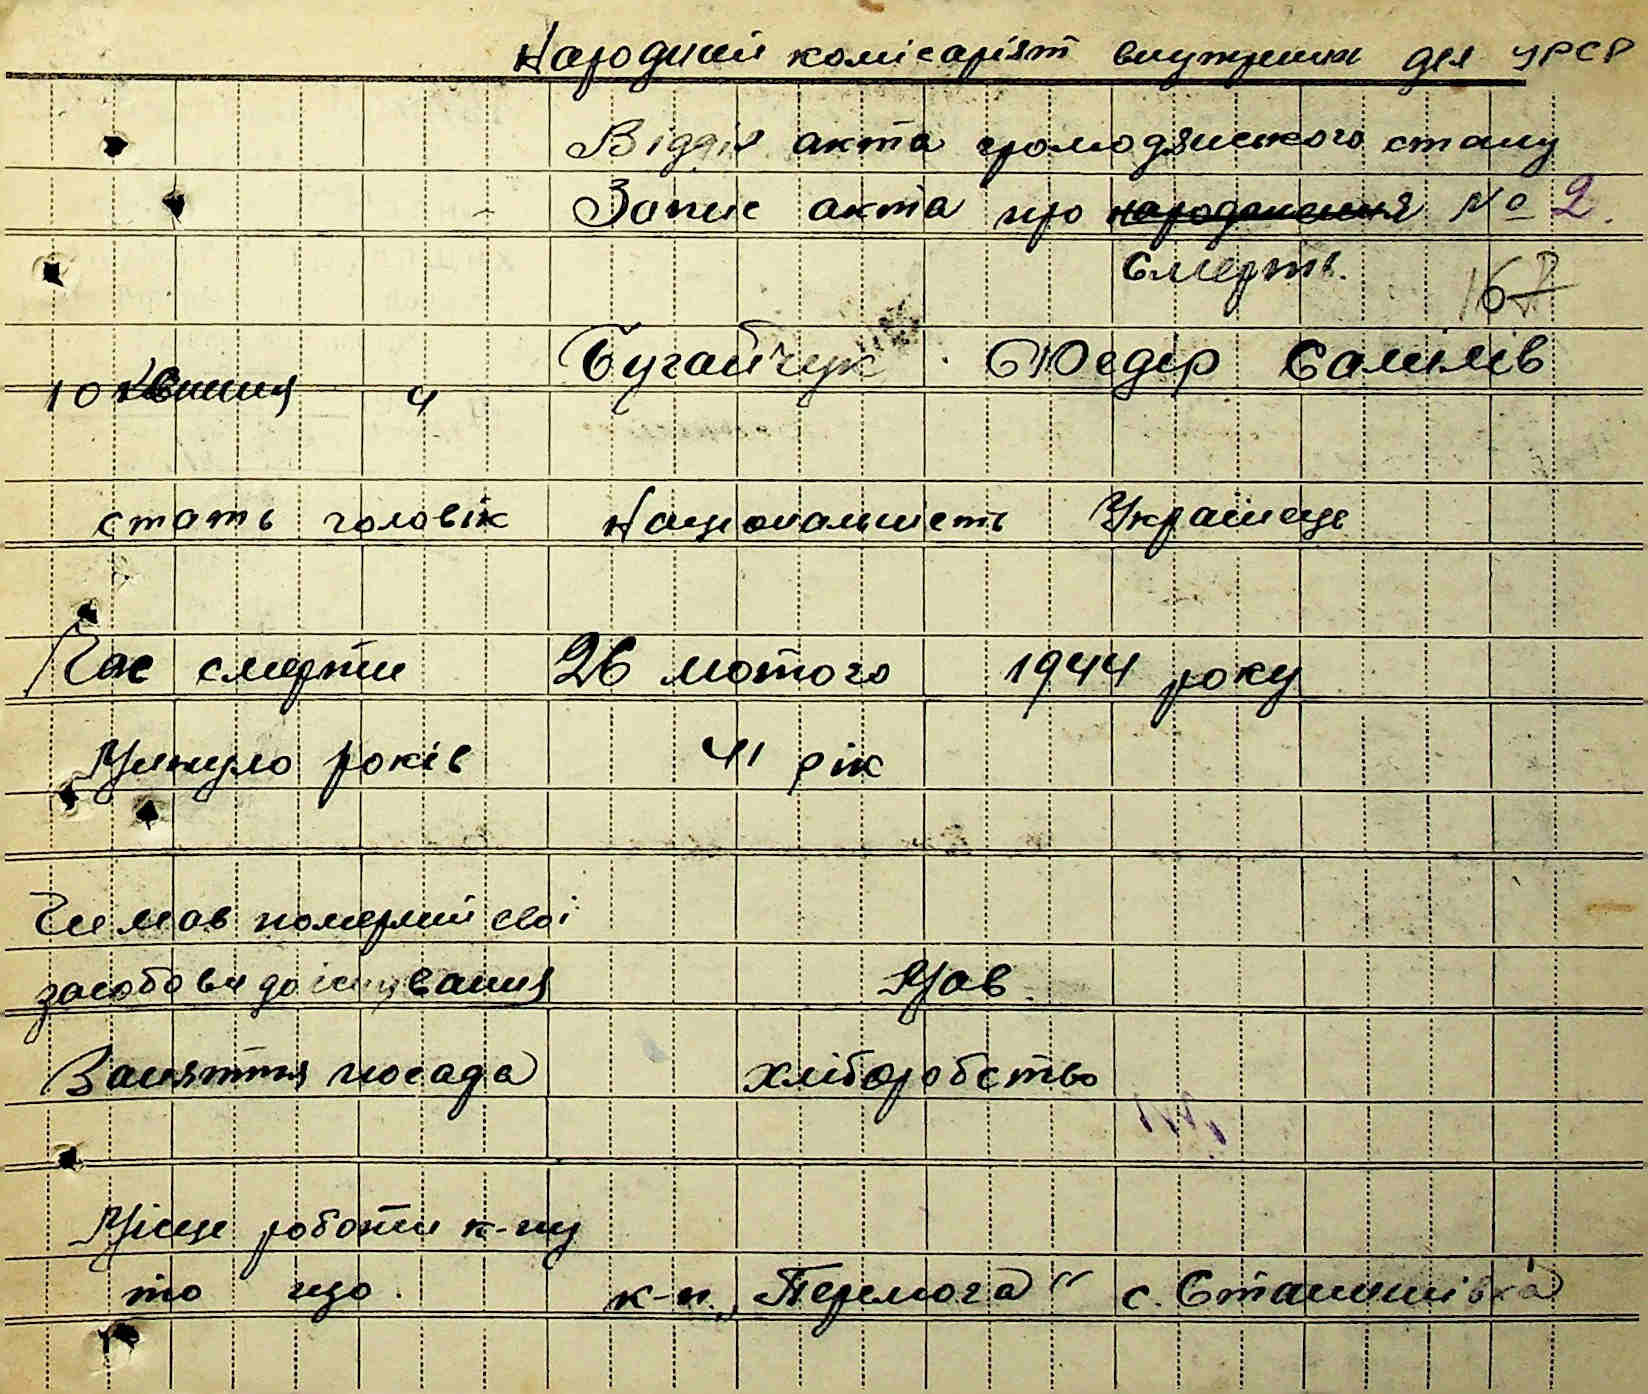 Народний комісаріят внутрішн дел УРСР
Відділ акта громодянського стану
Запис акта про народження № 2.
смерть.
167
Бугайчук Федір Салілів
10 квітня 4
стать чоловік Національність Українець
Час смерти 26 лютого 1944 року
Минуло років 41 рік
Чи мав померлий свої
засоби до існування Мав
Заняття посада хліборобство
Місце роботи к-пу
то що. к-п. „Перемога" с. Станишівка